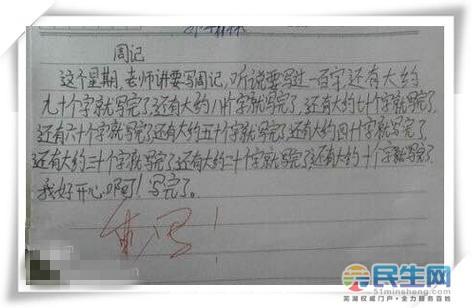 周记
这个星期,老师讲要写周记,听说要写过一百字,还有大约
九十个字就写完了,还有大约八十个字就写完了,还有大约七十个字就写完了,
还有六十个字就写完了还有大约五十个字就写完了还有大约四十个字就写完了
还有大约三十个字就写完了还有大约二十个字就写完了还有大约十个字就写完了
我好开心啊!写完了。
重写!
民生网
51minsheng.com
芜湖权威门户·全力服务百姓